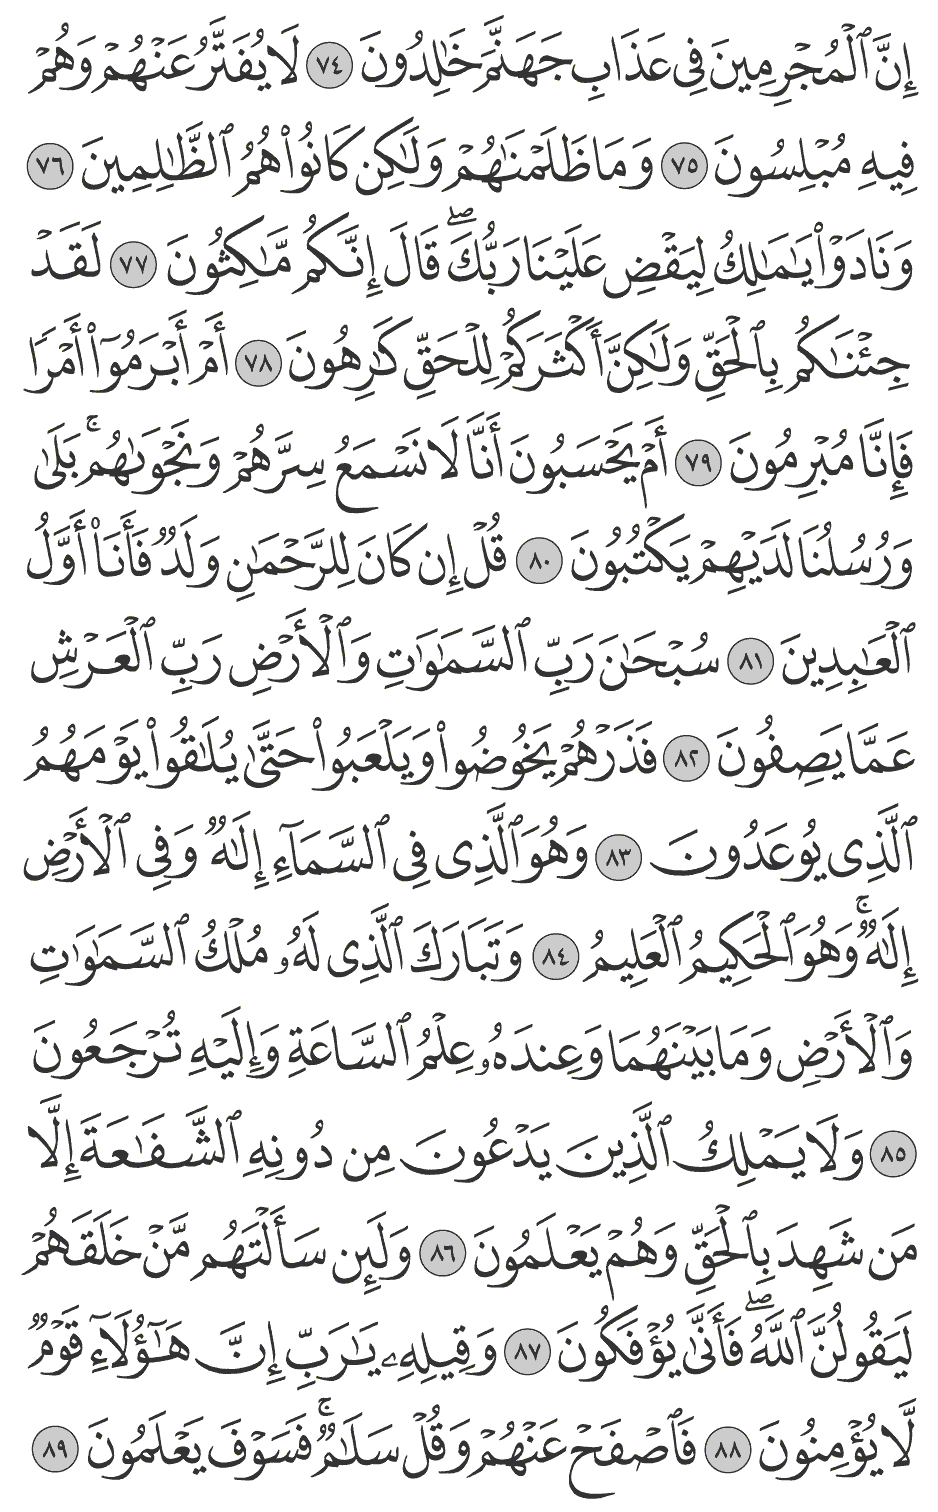 إِنَّ ٱلْمُجْرِمِينَ فِى عَذَابِ جَهَنَّمَ خَٰلِدُونَ ٧٤ لَا يُفَتَّرُ عَنْهُمْ وَهُمْ
فِيهِ مُبْلِسُونَ ٧٥ وَمَا ظَلَمْنَٰهُمْ وَلَٰكِن كَانُوا۟ هُمُ ٱلظَّٰلِمِينَ ٧٦
وَنَادَوْا۟ يَٰمَٰلِكُ لِيَقْضِ عَلَيْنَا رَبُّكَ ۖ قَالَ إِنَّكُم مَّٰكِثُونَ ٧٧ لَقَدْ
جِئْنَٰكُم بِٱلْحَقِّ وَلَٰكِنَّ أَكْثَرَكُمْ لِلْحَقِّ كَٰرِهُونَ ٧٨ أَمْ أَبْرَمُوٓا۟ أَمْرًا
فَإِنَّا مُبْرِمُونَ ٧٩ أَمْ يَحْسَبُونَ أَنَّا لَا نَسْمَعُ سِرَّهُمْ وَنَجْوَىٰهُم ۚ بَلَىٰ
وَرُسُلُنَا لَدَيْهِمْ يَكْتُبُونَ ٨٠ قُلْ إِن كَانَ لِلرَّحْمَٰنِ وَلَدٌ فَأَنَا۠ أَوَّلُ
ٱلْعَٰبِدِينَ ٨١ سُبْحَٰنَ رَبِّ ٱلسَّمَٰوَٰتِ وَٱلْأَرْضِ رَبِّ ٱلْعَرْشِ
عَمَّا يَصِفُونَ ٨٢ فَذَرْهُمْ يَخُوضُوا۟ وَيَلْعَبُوا۟ حَتَّىٰ يُلَٰقُوا۟ يَوْمَهُمُ
ٱلَّذِى يُوعَدُونَ ٨٣ وَهُوَ ٱلَّذِى فِى ٱلسَّمَآءِ إِلَٰهٌ وَفِى ٱلْأَرْضِ
إِلَٰهٌ ۚ وَهُوَ ٱلْحَكِيمُ ٱلْعَلِيمُ ٨٤ وَتَبَارَكَ ٱلَّذِى لَهُۥ مُلْكُ ٱلسَّمَٰوَٰتِ
وَٱلْأَرْضِ وَمَا بَيْنَهُمَا وَعِندَهُۥ عِلْمُ ٱلسَّاعَةِ وَإِلَيْهِ تُرْجَعُونَ
٨٥ وَلَا يَمْلِكُ ٱلَّذِينَ يَدْعُونَ مِن دُونِهِ ٱلشَّفَٰعَةَ إِلَّا
مَن شَهِدَ بِٱلْحَقِّ وَهُمْ يَعْلَمُونَ ٨٦ وَلَئِن سَأَلْتَهُم مَّنْ خَلَقَهُمْ
لَيَقُولُنَّ ٱللَّهُ ۖ فَأَنَّىٰ يُؤْفَكُونَ ٨٧ وَقِيلِهِۦ يَٰرَبِّ إِنَّ هَٰٓؤُلَآءِ قَوْمٌ
لَّا يُؤْمِنُونَ ٨٨ فَٱصْفَحْ عَنْهُمْ وَقُلْ سَلَٰمٌ ۚ فَسَوْفَ يَعْلَمُونَ ٨٩